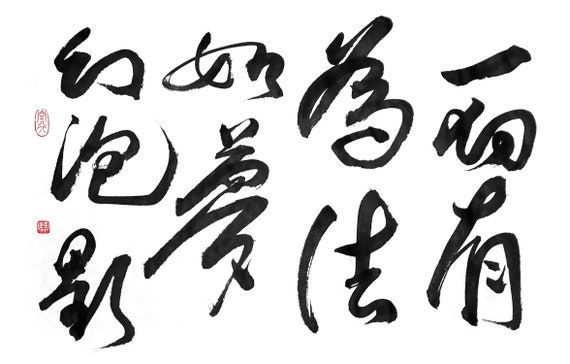 一切有
為法
如夢
幻泡影